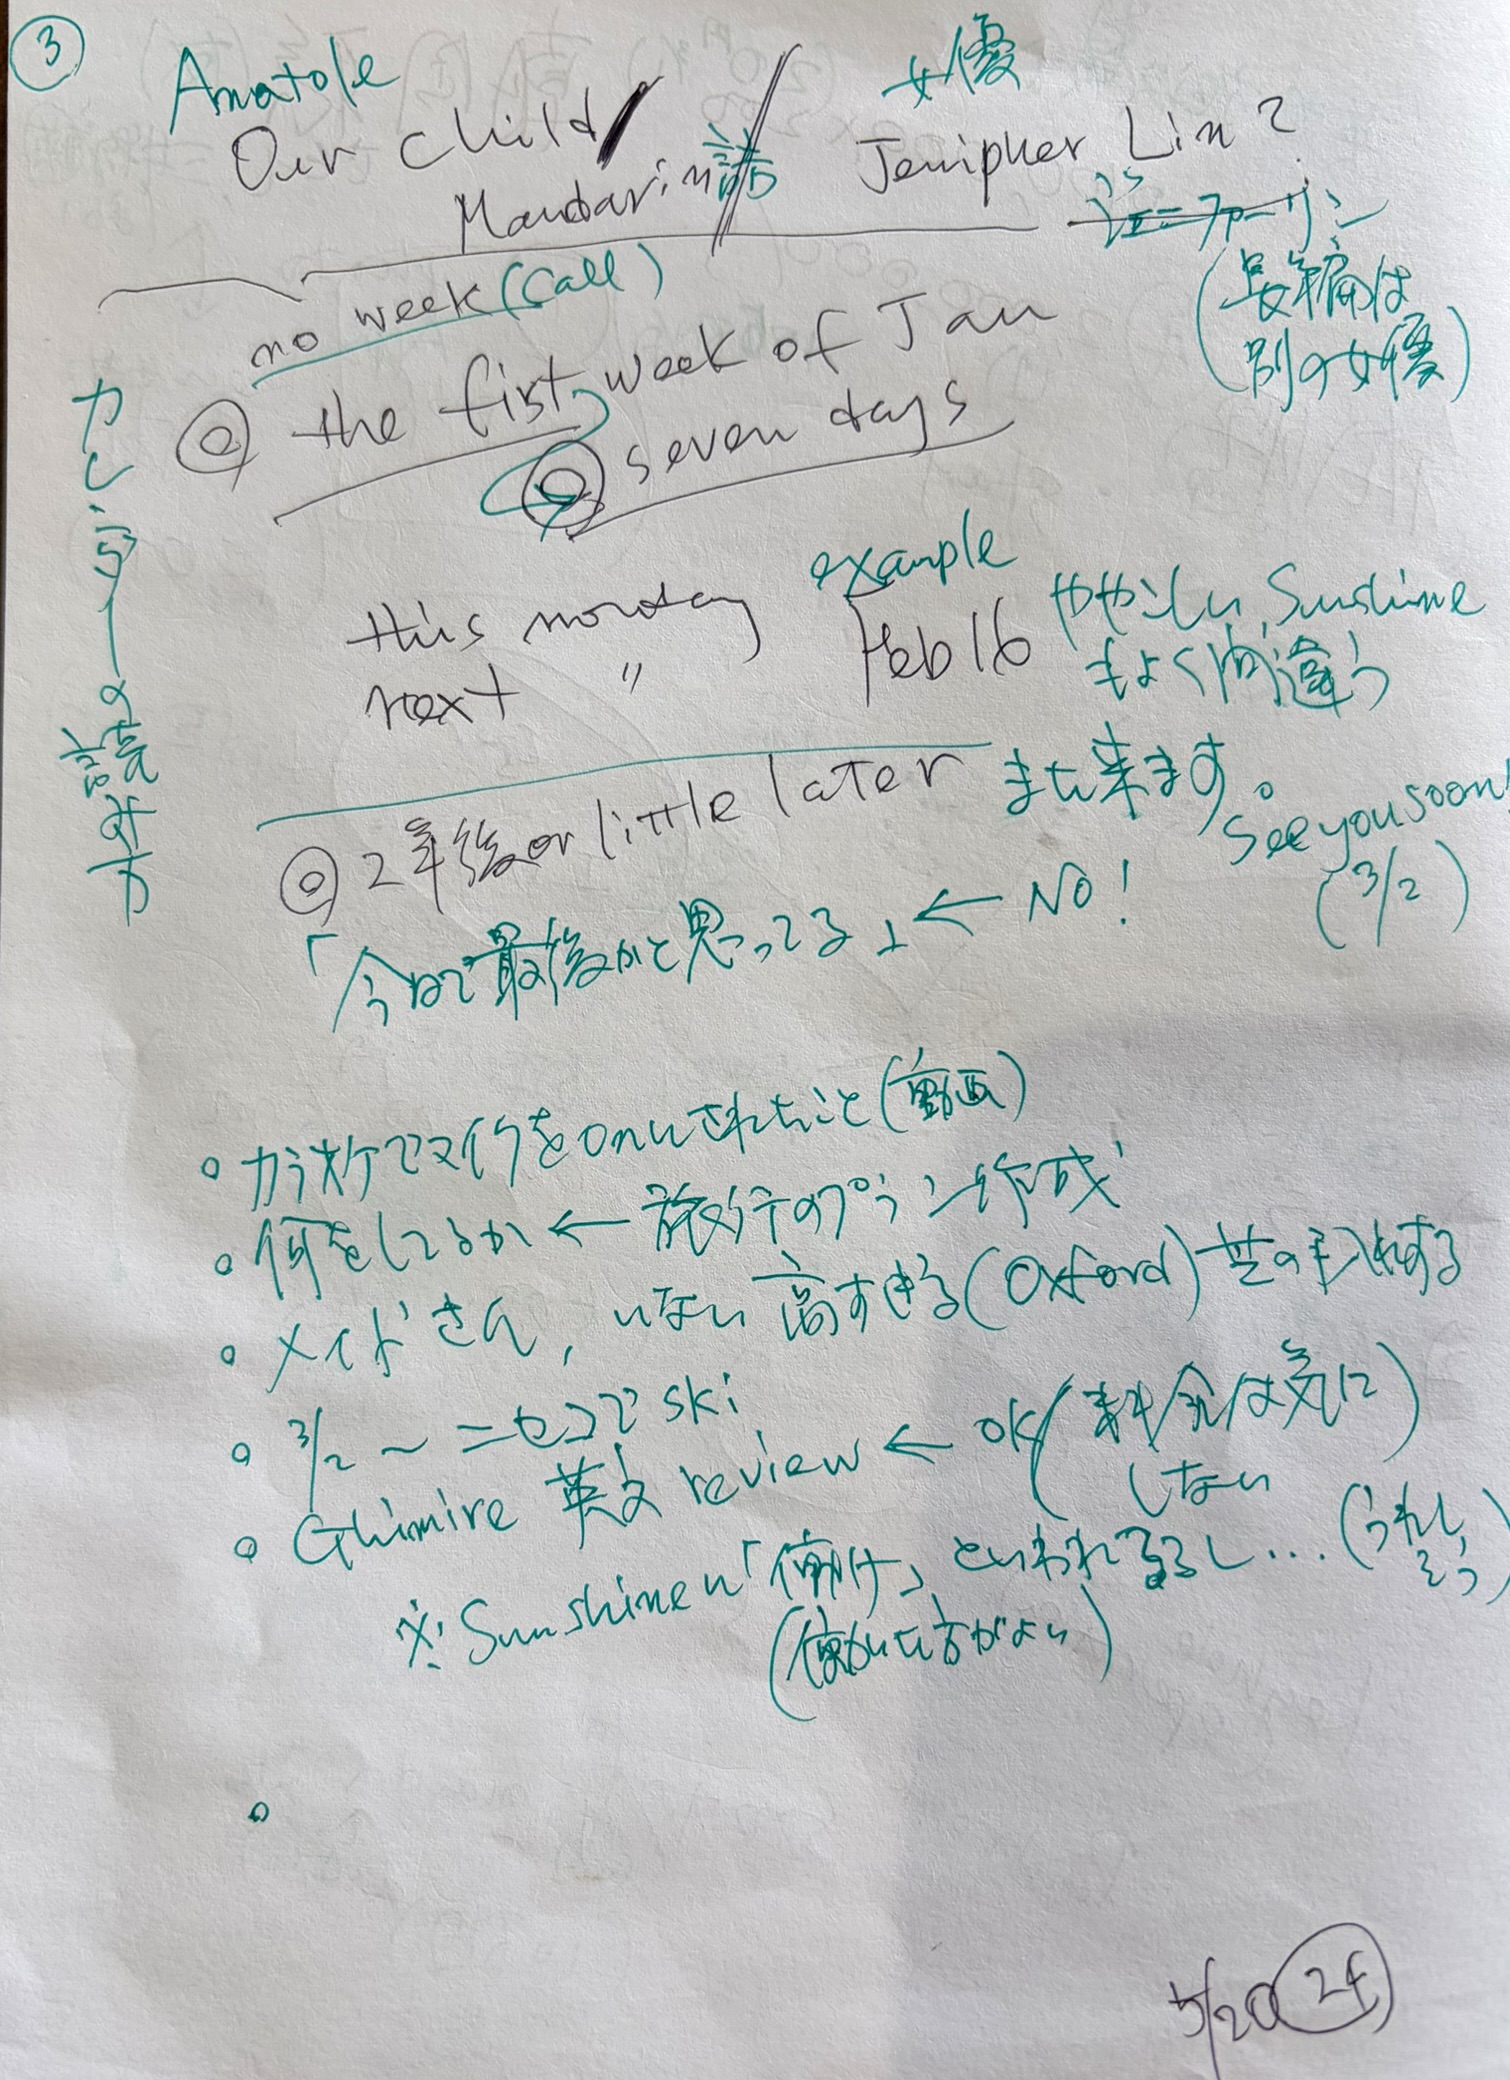 ③
Anatole
女優
Our child
Jenipher Lin?
Mandarin語
ジェニファーリン
(長編は
別の女優)
カレンダーの読み方
no week (call)
◎ the first week of Jan
◎ seven days
example
this monday
Feb 16
next 〃
ややこしい, Sunshine
もよく間違う
◎ 2年後 or little later
また来ます。
See you soon!
(3/2)
「今日で最後かと思ってる」 ← NO!
○ カラオケでマイクをonにされたこと(動画)
○ 何をしてるか ← 旅行のプラン作成
○ メイドさん, いない 高すぎる (Oxford) 芝の手入れする
○ 3/2 ~ ニセコで ski
○ Ghimire 英文 review ← OK (料金は気に
しない)
※ Sunshineに「働け」といわれてるし... (うれし
そう)
(働いた方がよい)
○
5/20 2f